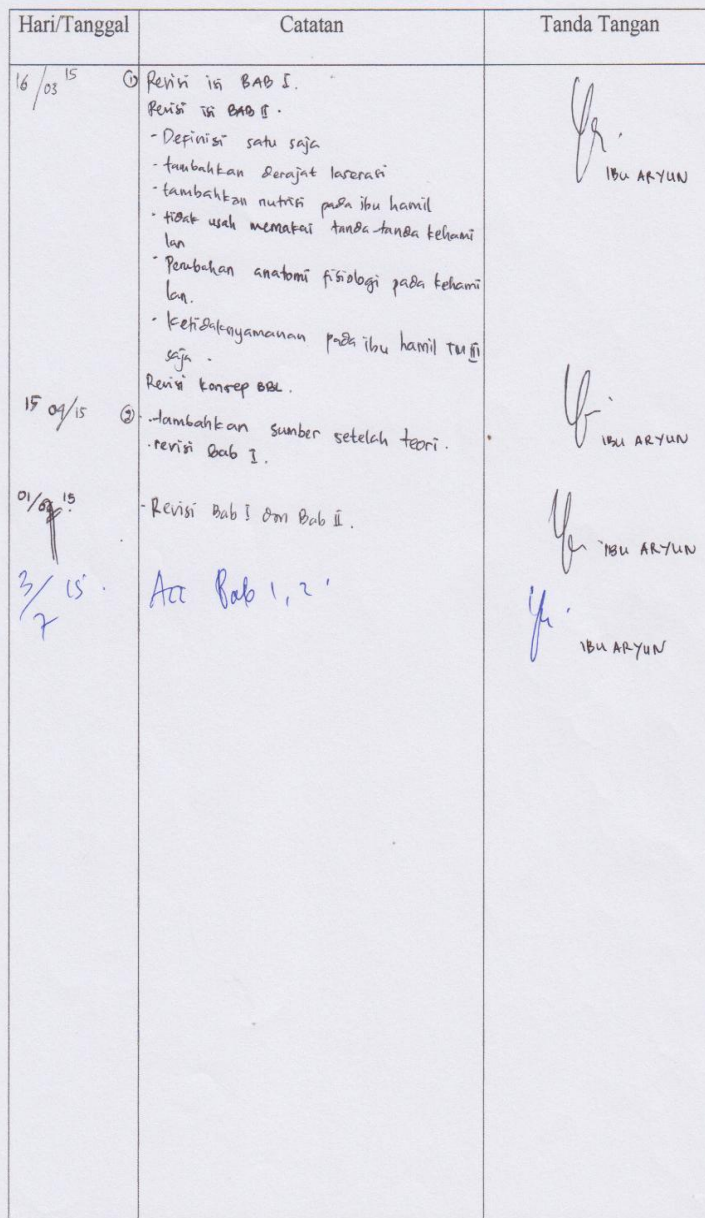 Hari/Tanggal Catatan Tanda Tangan
16/03 15 ① Revisi isi BAB I.
Revisi isi BAB II.
- Definisi satu saja
- tambahkan derajat laserasi
- tambahkan nutrisi pada ibu hamil
IBU ARYUN
- tidak usah memakai tanda-tanda kehami
lan
- Perubahan anatomi fisiologi pada kehami
lan.
- ketidaknyamanan pada ibu hamil TM III
saja.
Revisi konsep BBL.
15 04/15 ② - tambahkan sumber setelah teori.
- revisi Bab I.
IBU ARYUN
01/ 15 - Revisi Bab I dan Bab II.
IBU ARYUN
3/7 15. Acc Bab 1, 2
IBU ARYUN